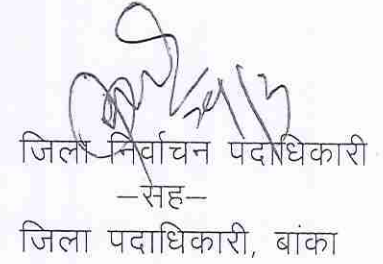 जिला निर्वाचन पदाधिकारी
–सह–
जिला पदाधिकारी, बांका